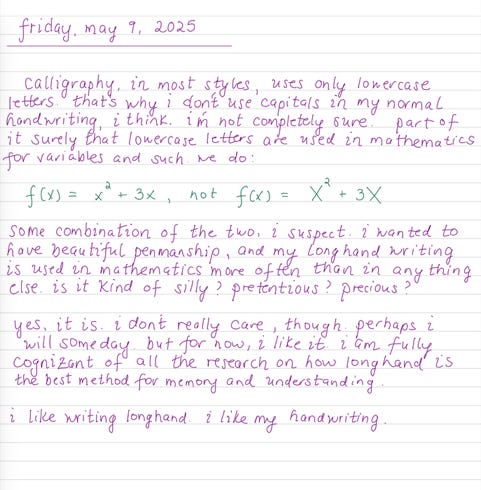 friday, may 9, 2025
calligraphy, in most styles, uses only lowercase
letters. that's why i don't use capitals in my normal
handwriting, i think. i'm not completely sure. part of
it surely that lowercase letters are used in mathematics
for variables and such. we do:
f(x) = x² + 3x, not f(x) = X² + 3X
some combination of the two, i suspect. i wanted to
have beautiful penmanship, and my longhand writing
is used in mathematics more often than in anything
else. is it kind of silly? pretentious? precious?
yes, it is. i don't really care, though. perhaps i
will someday. but for now, i like it. i am fully
cognizant of all the research on how longhand is
the best method for memory and understanding.
i like writing longhand. i like my handwriting.